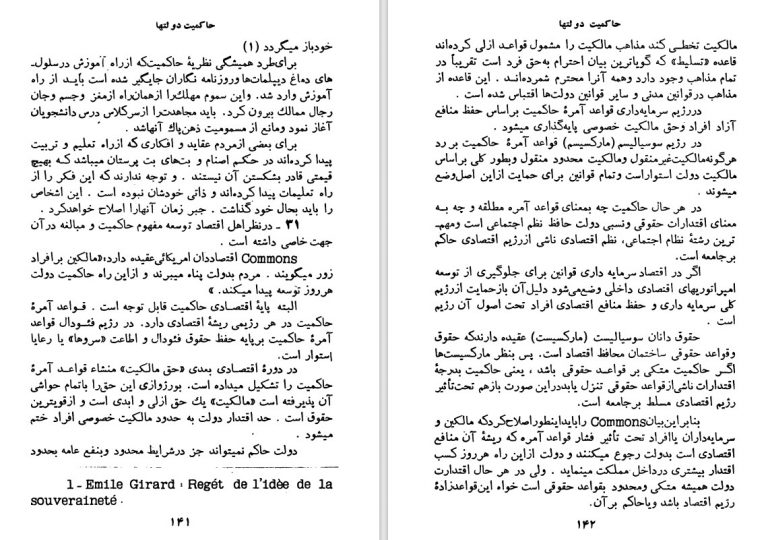 حاکمیت دولتها
خودباز میگردد (۱)
برای‌طرد همیشگی نظریهٔ حاکمیت‌که ازراه آموزش درسلول‌ـ
های دماغ دیپلمات‌ها وروزنامه نگاران جایگیر شده است بایـد از راه
آموزش وارد شد. واین سموم مهلك‌را ازهمان‌راه ازمغز وجسم وجان
رجال ممالك بیرون کرد. باید مجاهدت‌را ازسرکلاس درس دانشجویان
آغاز نمود ومانع از مسمومیت ذهن‌پاك آنهاشد.
برای بعضی ازمردم عقاید و افکاری که ازراه تعلیم و تربیت
پیدا کرده‌اند در حکـم اصنام و بت‌های بت پرستان میباشد کـه بهیچ
قیمتی قادر بشکستن آن نیستند. و توجه ندارند که این فکر را از
راه تعلیمات پیدا کرده‌اند و ذاتی خودشان نبوده است. این اشخاص
را باید بحال خود گذاشت. جبر زمان آنهارا اصلاح خواهدکرد.
۳۱ ـ درنظراهل اقتصاد توسعه مفهوم حاکمیت و مبالنه درآن
جهت خاصی داشته است.
Commons اقتصاددان امریکائی‌عقیده دارد،«مالکین برافراد
زور میگویند. مردم بدولت پناه میبرند و ازاین راه حاکمیت دولت
هرروز توسعه پیدا میکند.»
البته پایهٔ اقتصـادی حاکمیت قابل توجه است. قـواعد آمرهٔ
حاکمیت در هر رژیمی ریشهٔ اقتصادی دارد. در رژیم فئـودال قواعد
آمرهٔ حاکمیت برپایه حفظ حقوق فئودال و اطاعت «سروها» یا رعایا
استوار است.
در دورهٔ اقتصـادی بعدی «حق مالکیت» منشاء قواعـد آمرهٔ
حاکمیت را تشکیل میداده است. بورزوازی این حق‌را باتمام حواشی
آن پذیرفته است «مالکیت» یك حق ازلی و ابدی است و ازقویترین
حقوق است. حد اقتدار دولت به حدود مالکیت خصوصی افراد ختم
میشود.
دولت حاکم نمیتواند جز درشرایط محدود وبنفع عامه بحدود
1 - Emile Girard : Regét de l'idèe de la
souveraineté .
۱۴۱
حاکمیت دولتها
مالکیت تخطـی کند مذاهب مالکیت را مشمول قواعـد ازلی کرده‌اند
قاعده «تسلیط» که گویاترین بیان احترام به‌حق فرد است تقریباً در
تمام مذاهب وجود دارد وهمه آنرا محترم شمرده‌انـد. این قاعده از
مذاهب درقوانین مدنی و سایر قوانین دولت‌ها اقتباس شده است.
دررژیم سرمایه‌داری قواعد آمرهٔ حاکمیت براساس حفظ منافع
آزاد افراد وحق مالکیت خصوصی پایه‌گذاری میشود.
در رژیم سوسیالیسم (مارکسیسم) قواعد آمرهٔ حاکمیت بررد
هرگونه‌مالکیت‌غیرمنقول ومالکیت محدود منقول وبطور کلی براساس
مالکیت دولت استواراست وتمام قوانین برای حمایت ازاین اصل‌وضع
میشوند.
در هر حال حاکمیت چه بمعنای قواعد آمره مطلقه و چه بـه
معنای اقتدارات حقوقی ونسبی دولت حافظ نظم اجتماعی است ومهم‌ـ
ترین رشتهٔ نظام اجتماعی، نظم اقتصادی ناشی ازرژیم اقتصادی حاکم
برجامعه است.
اگر در اقتصاد سرمایه داری قوانین برای جلوگیری از توسعه
امپراتوریهای اقتصادی داخلی وضع‌می‌شود دلیل‌آن بازحمایت ازرژیم
کلی سرمایه داری و حفظ منافع اقتصادی افراد تحت اصول آن رژیم
است.
حقوق دانان سوسیالیست (مارکسیست) عقیده دارندکه حقوق
وقواعد حقوقی ساختمان محافظ اقتصاد است. پس بنظر مارکسیست‌ها
اگـر حاکمیت متکی بر قواعـد حقوقی باشد، یعنی حاکمیت بدرجهٔ
اقتدارات ناشی‌ازقواعد حقوقی تنزل یابددراین صورت بازهم تحت‌تأثیر
رژیم اقتصادی مسلط برجامعه است.
بنابراین‌بیان‌Commons رابایداینطوراصلاح‌کردکه مالکین و
سرمایه‌داران یاافراد تحت تأثیر فشار قواعد آمره که ریشهٔ آن منافع
اقتصادی است بدولت رجوع میکنند و دولت ازاین راه هرروز کسب
اقتدار بیشتری درداخل مملکت مینماید. ولی در هر حال اقتدارت
دولت همیشه متکی ومحدود بقواعد حقوقی است خواه این‌قواعدزادهٔ
رژیم اقتصاد باشد ویاحاکم برآن.
۱۴۲